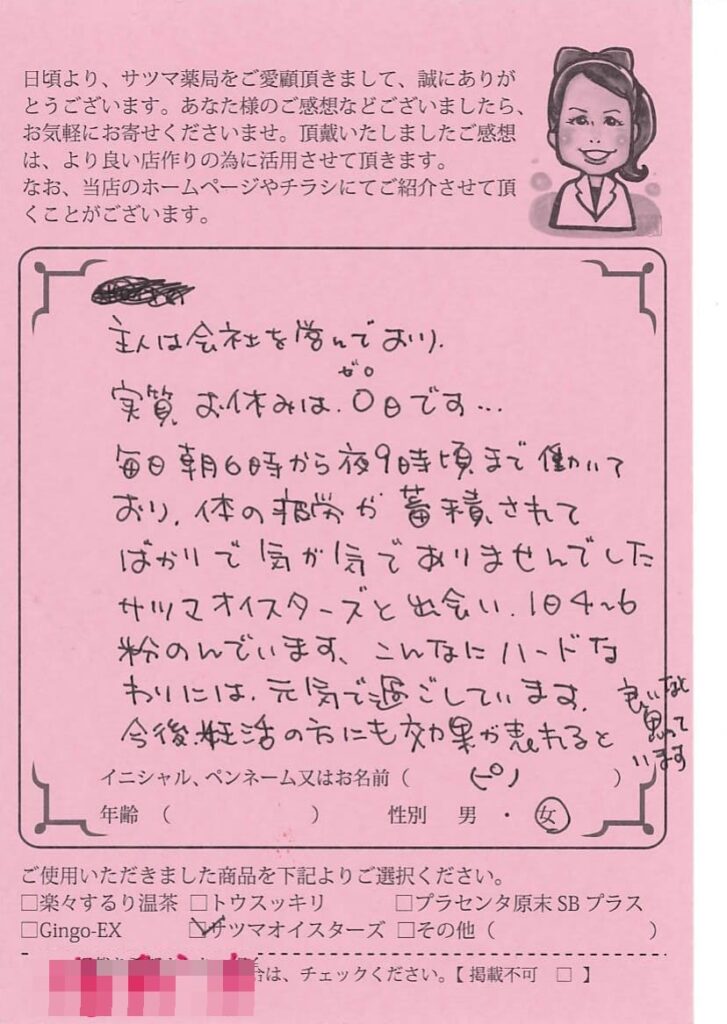 日頃より、サツマ薬局をご愛顧頂きまして、誠にありが
とうございます。あなた様のご感想などございましたら、
お気軽にお寄せくださいませ。頂戴いたしましたご感想
は、より良い店作りの為に活用させて頂きます。
なお、当店のホームページやチラシにてご紹介させて頂
くことがございます。
主人は会社を営んでおり、
ゼロ
実質お休みは、0日です…
毎日朝6時から夜9時頃まで働いて
おり、体の疲労が蓄積されて
ばかりで気が気でありませんでした
サツマオイスターズと出会い、1日4〜6
粉のんでいます、こんなにハードな
わりには、元気で過ごしています。
今後、妊活の方にも効果が表れると
良いなと
思って
います
イニシャル、ペンネーム又はお名前（ ピノ ）
年齢 （ ） 性別 男 ・ 女
ご使用いただきました商品を下記よりご選択ください。
□楽々するり温茶 □トウスッキリ □プラセンタ原末 SB プラス
□Gingo-EX ☑サツマオイスターズ □その他（ ）
合は、チェックください。【 掲載不可 □ 】